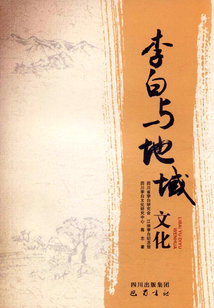 李白与地域
文化
LIBAI YU DIYU
WENHUA
四川出版集团
巴蜀书社